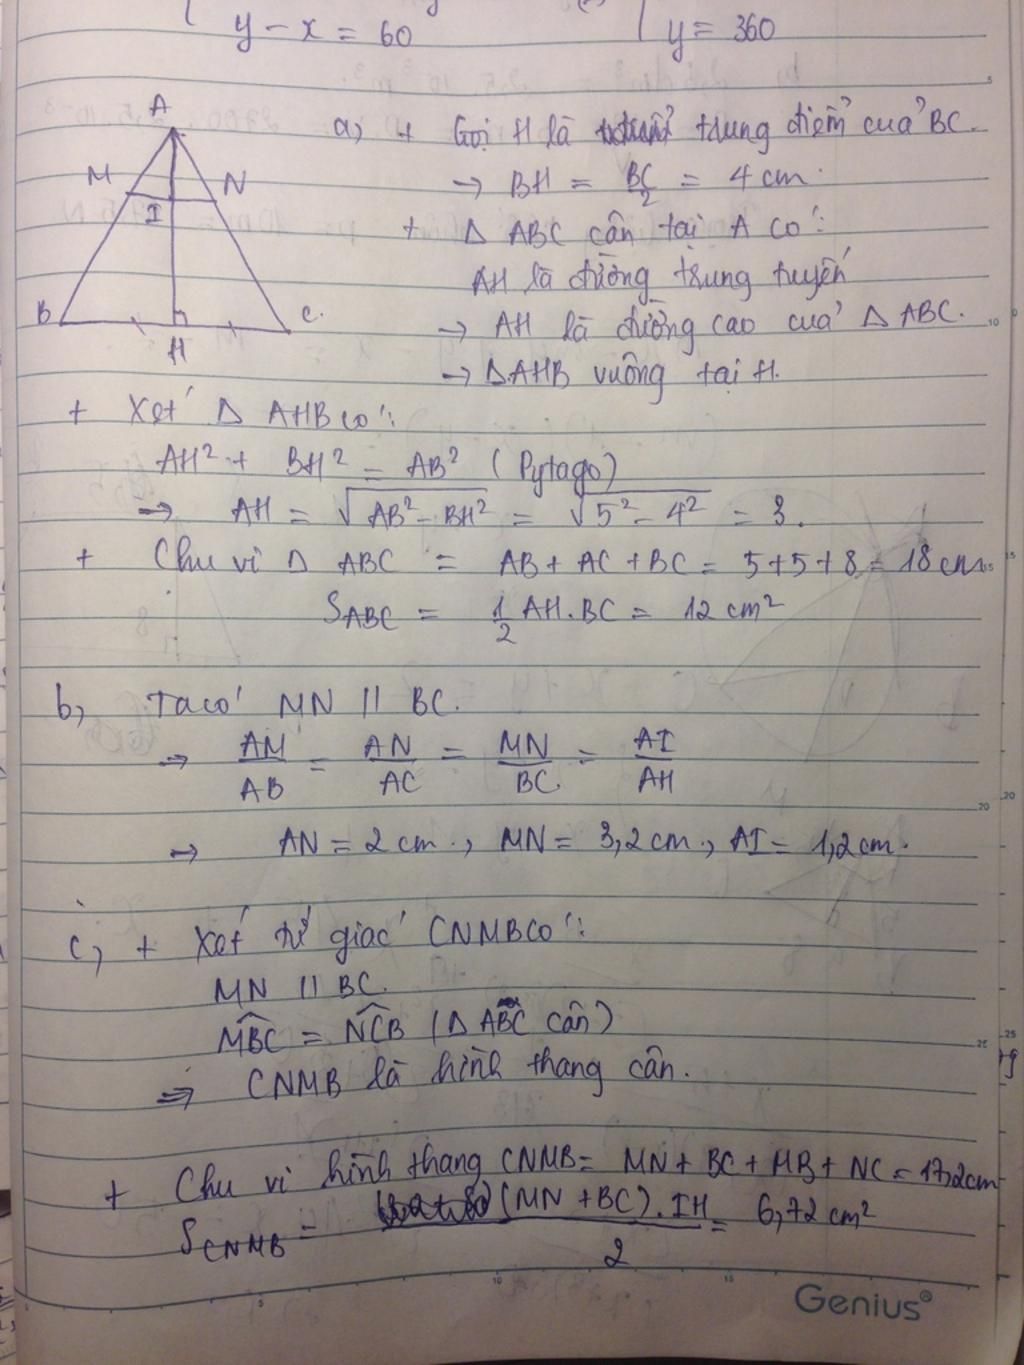 y - x = 60
y = 360
A
M
N
I
B
C.
H
a, + Gọi H là trung điểm của BC.
→ BH = BC/2 = 4 cm.
+ Δ ABC cân tại A có:
AH là đường trung tuyến
→ AH là đường cao của Δ ABC.
→ ΔAHB vuông tại H.
+ Xét Δ AHB có:
AH² + BH² = AB² (Pytago)
→ AH = √AB² - BH² = √5² - 4² = 3.
+ Chu vi Δ ABC = AB + AC + BC = 5 + 5 + 8 = 18 cm
S ABC = 1/2 AH.BC = 12 cm²
b, Ta có MN // BC.
→ AM/AB = AN/AC = MN/BC = AI/AH
→ AN = 2 cm, MN = 3,2 cm, AI = 1,2 cm.
c, + Xét tứ giác CNMB có:
MN // BC.
MBC = NCB (Δ ABC cân)
⇒ CNMB là hình thang cân.
+ Chu vi hình thang CNMB = MN + BC + MB + NC = 17,2cm
S CNMB = (MN + BC).IH/2 = 6,72 cm²
Genius®